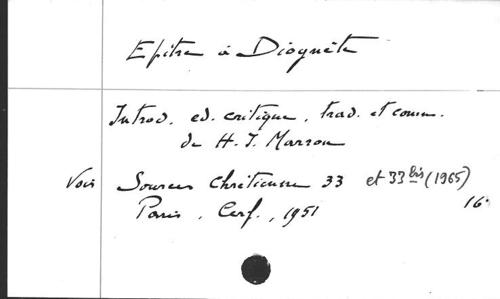 Epitre à Diognète
Introd. ed. critique, trad. et comm.
de H. I. Marrou
Voir Sources Chrétiennes 33 et 33bis (1965)
Paris, Cerf., 1951 16°